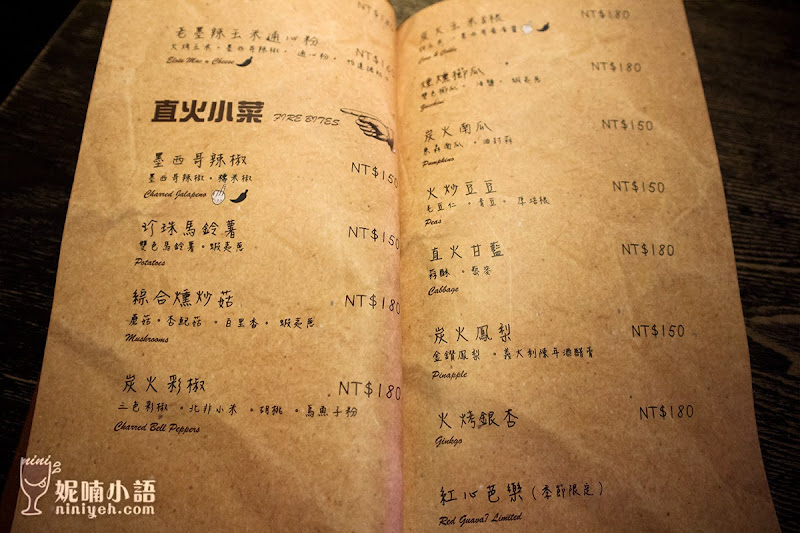 NT$180
毛墨辣玉米通心粉
NT$1
火烤玉米。墨西哥辣椒。通心粉。
Elote Mac n Cheese
直火小菜 FIRE BITES
墨西哥辣椒 NT$150
墨西哥辣椒。糯米椒
Charred Jalapeno
珍珠馬鈴薯 NT$150
雙色馬鈴薯。蝦夷蔥
Potatoes
綜合燻炒菇 NT$180
蘑菇。杏鮑菇。百里香。蝦夷蔥
Mushrooms
炭火彩椒 NT$180
三色彩椒。北非小米。胡桃。烏魚子粉
Charred Bell Peppers
炭火玉米 NT$180
NT$180
燻燻櫛瓜
雙色櫛瓜。海鹽。蝦夷蔥
Zucchini
炭火南瓜 NT$150
南瓜
Pumpkins
火炒豆豆 NT$150
毛豆仁。青豆。
Peas
直火甘藍 NT$180
蒜酥。
Cabbage
炭火鳳梨 NT$150
金鑽鳳梨。義大利陳年酒醋膏
Pinapple
火烤銀杏 NT$180
Ginkgo
紅心芭樂（季節限定）
Red Guava? Limited
nini
妮喃小語
niniyeh.com